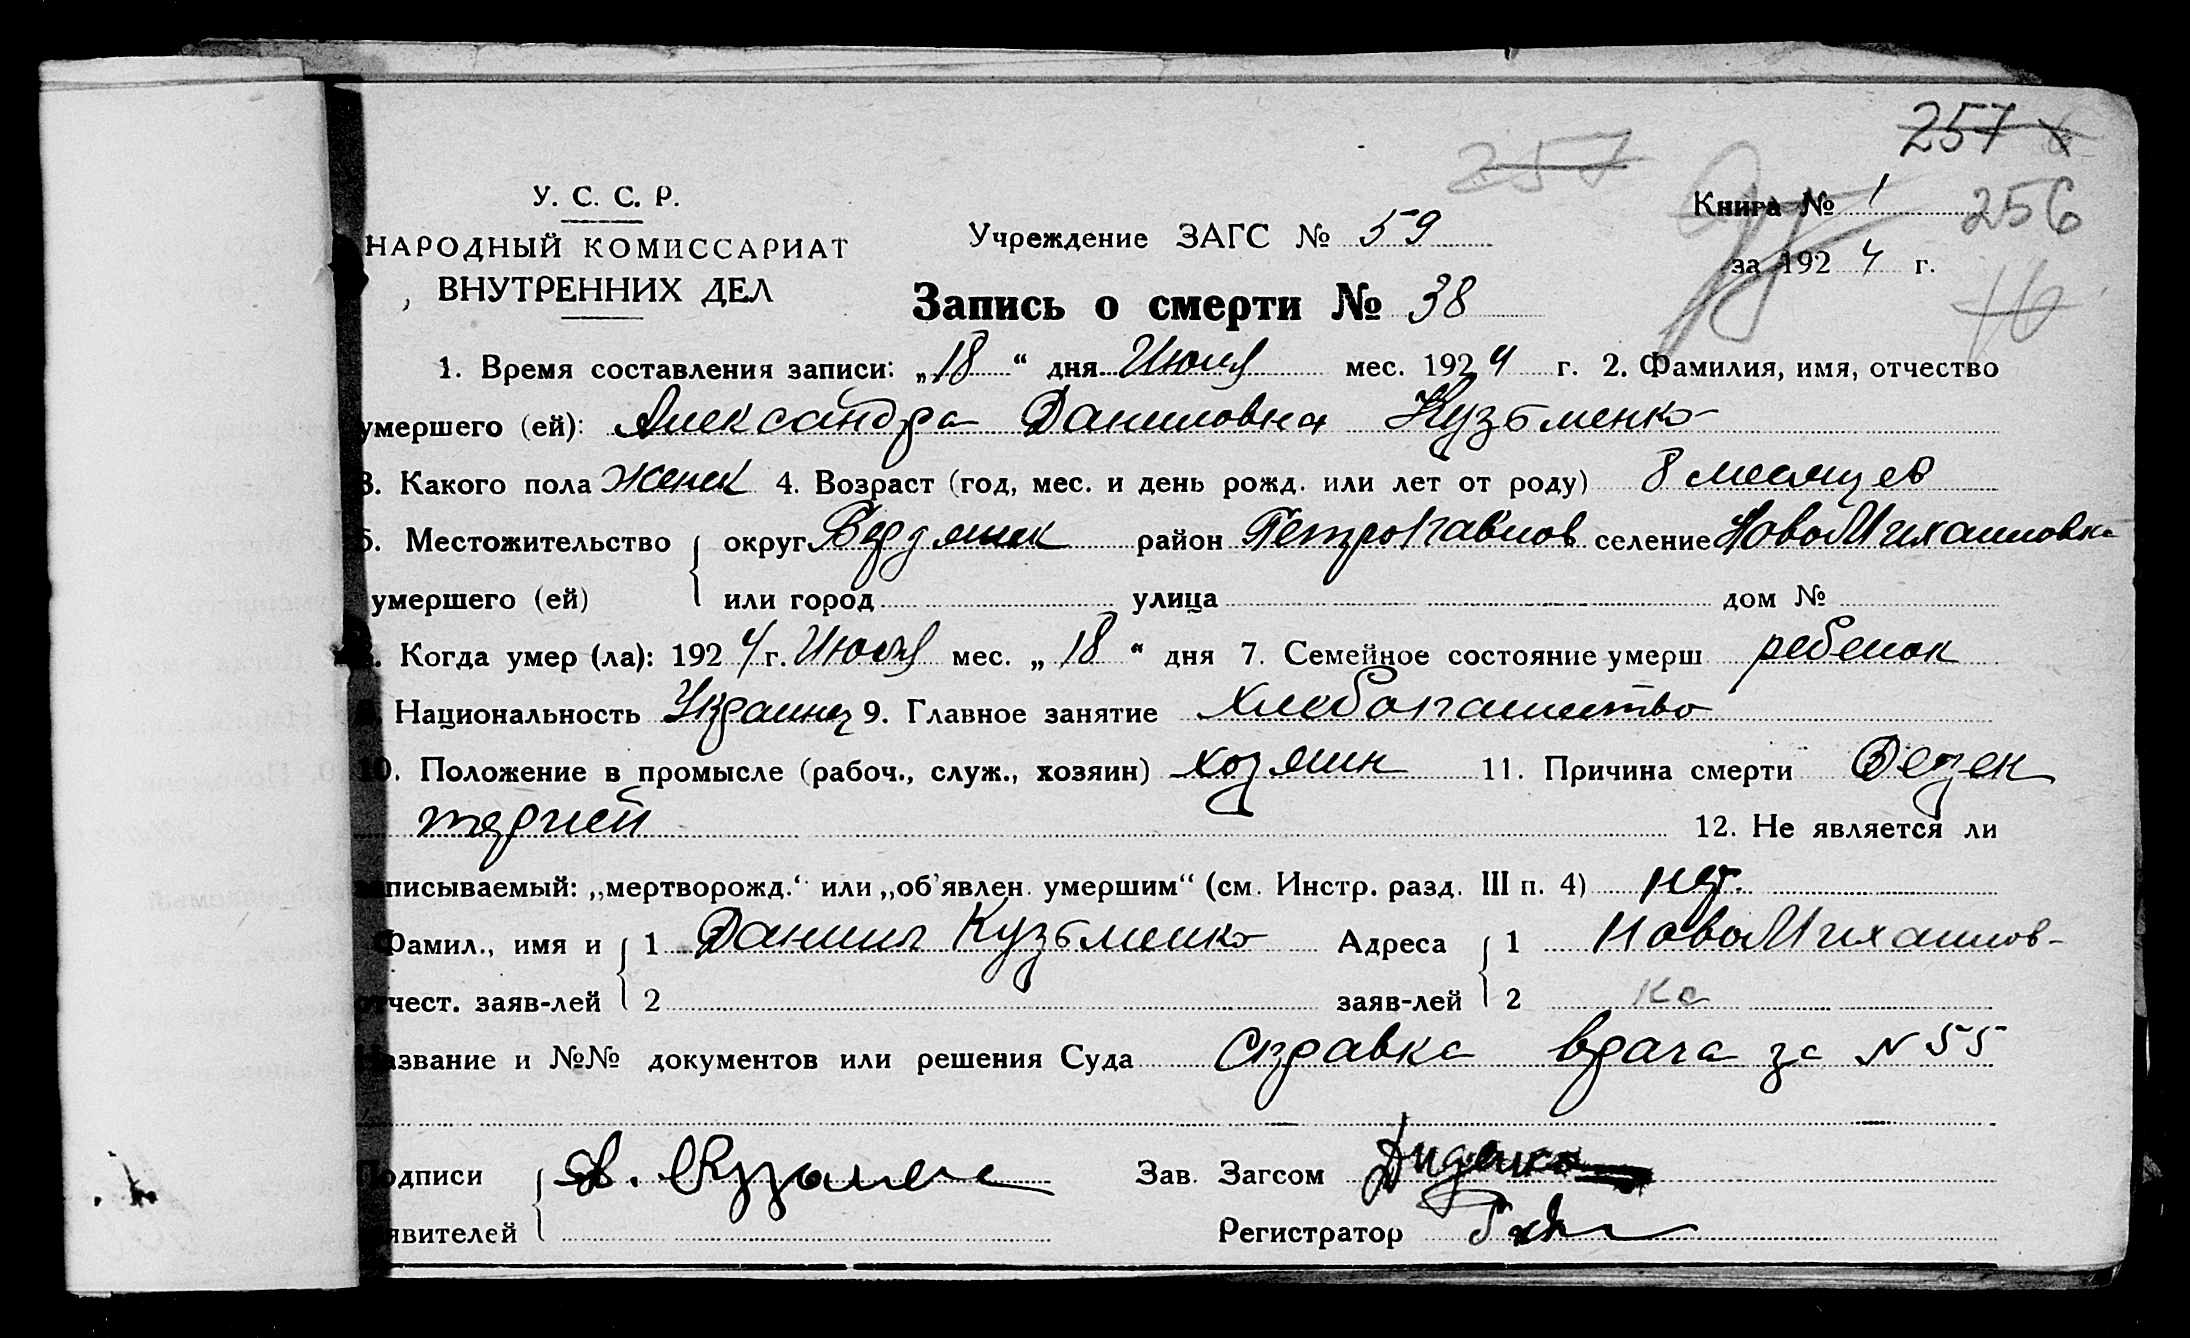 257
257
У. С. С. Р.
Книга № 1
256
НАРОДНЫЙ КОМИССАРИАТ
Учреждение ЗАГС № 59
за 1924 г.
ВНУТРЕННИХ ДЕЛ
Запись о смерти № 38
16
1. Время составления записи: „18“ дня Июля мес. 1924 г. 2. Фамилия, имя, отчество
умершего (ей): Александра Даниловна Кузьменко
3. Какого пола женск 4. Возраст (год, мес. и день рожд. или лет от роду) 8 месяцев
5. Местожительство округ Бердянск район Петропавлов селение НовоМихаиловка
умершего (ей) или город улица дом №
Когда умер (ла): 1924 г. Июля мес. „18“ дня 7. Семейное состояние умерш ребенок
Национальность Украинец 9. Главное занятие хлебопашество
10. Положение в промысле (рабоч., служ., хозяин) хозяин 11. Причина смерти Дезен
терией 12. Не является ли
записываемый: „мертворожд.‘ или „об’явлен умершим“ (см. Инстр. разд. III п. 4) нет.
Фамил., имя и 1 Данило Кузьменко Адреса 1 НовоМихаилов-
отчест. заяв-лей 2 заяв-лей 2 ка
Название и №№ документов или решения Суда Справка врача за N 55
Подписи Зав. Загсом Диденко
явителей Регистратор